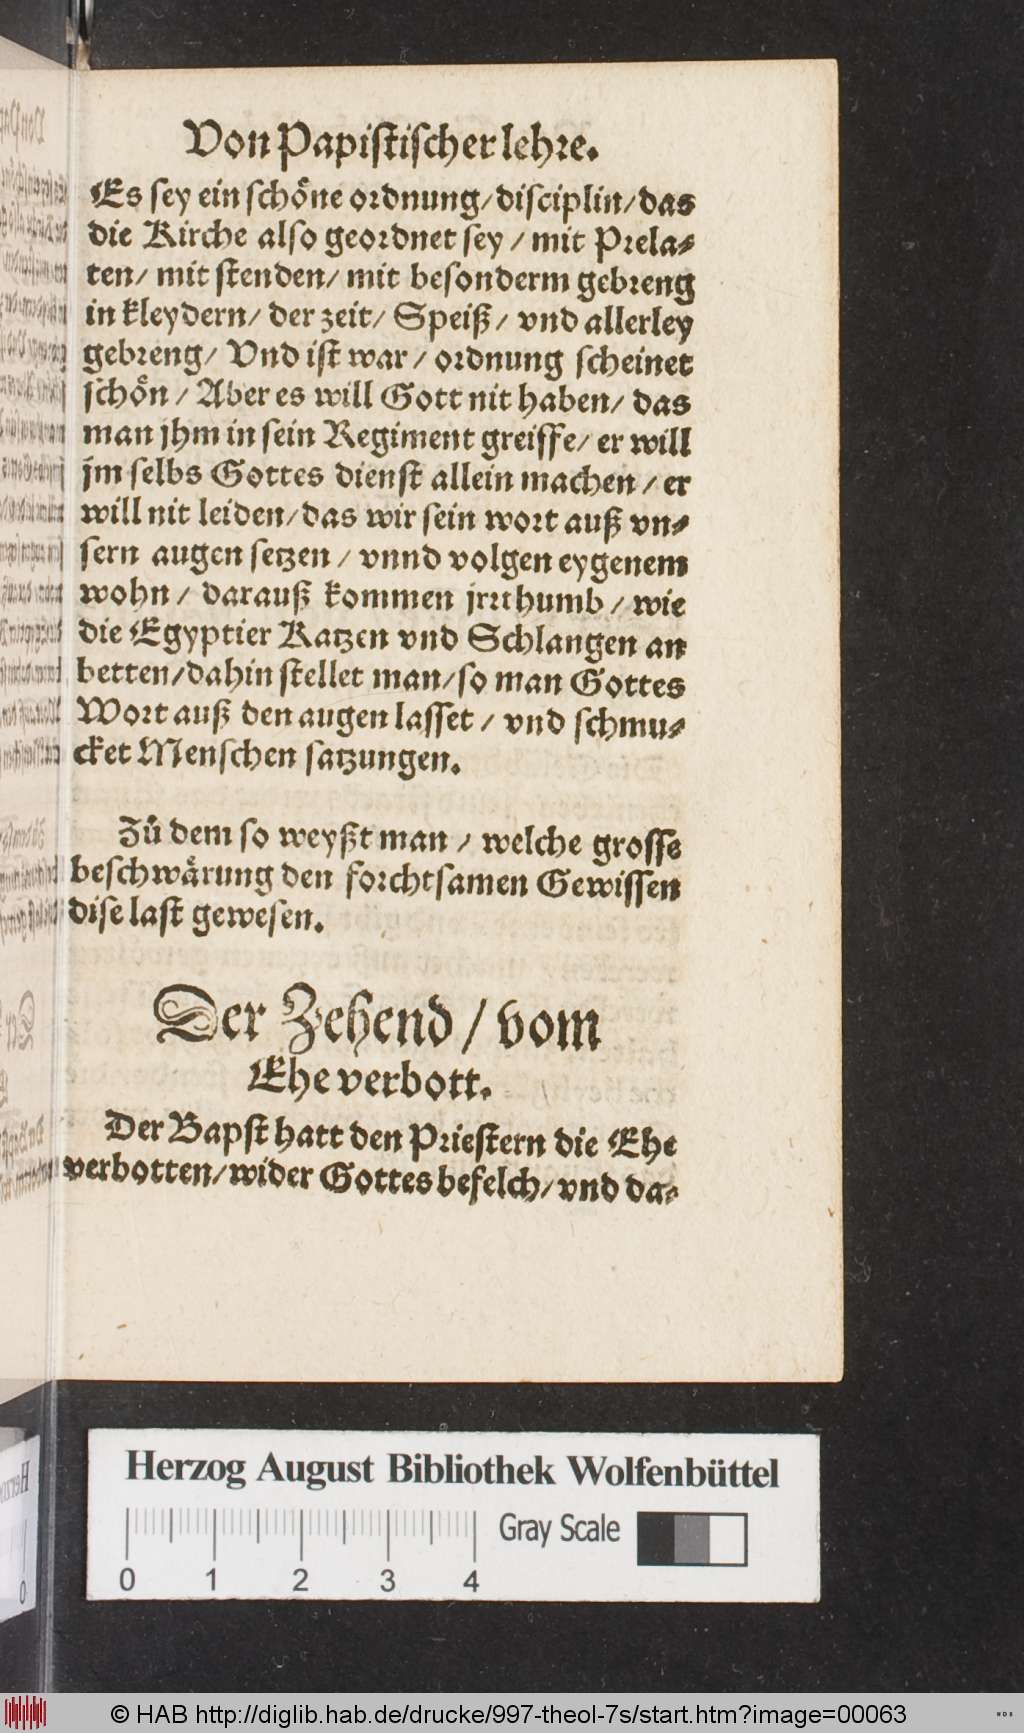 Von Papistischer lehre.
Es sey ein schöne ordnung/ disciplin/ das
die Kirche also geordnet sey / mit Prela⸗
ten/ mit stenden/ mit besonderm gebreng
in kleydern/ der zeit/ Speiß/ vnd allerley
gebreng/ Vnd ist war / ordnung scheinet
schön / Aber es will Gott nit haben/ das
man jhm in sein Regiment greiffe/ er will
jm selbs Gottes dienst allein machen / er
will nit leiden/ das wir sein wort auß vn⸗
sern augen setzen / vnnd volgen eygenem
wohn / darauß kommen jrrthumb / wie
die Egyptier Katzen vnd Schlangen an
betten/ dahin stellet man/ so man Gottes
Wort auß den augen lasset / vnd schmu⸗
cket Menschen satzungen.
Zů dem so weyßt man / welche grosse
beschwärung den forchtsamen Gewissen
dise last gewesen.
Der Zehend / vom
Ehe verbott.
Der Bapst hatt den Priestern die Ehe
verbotten/ wider Gottes befelch/ vnd da⸗
Herzog August Bibliothek Wolfenbüttel
Gray Scale
0 1 2 3 4
© HAB http://diglib.hab.de/drucke/997-theol-7s/start.htm?image=00063